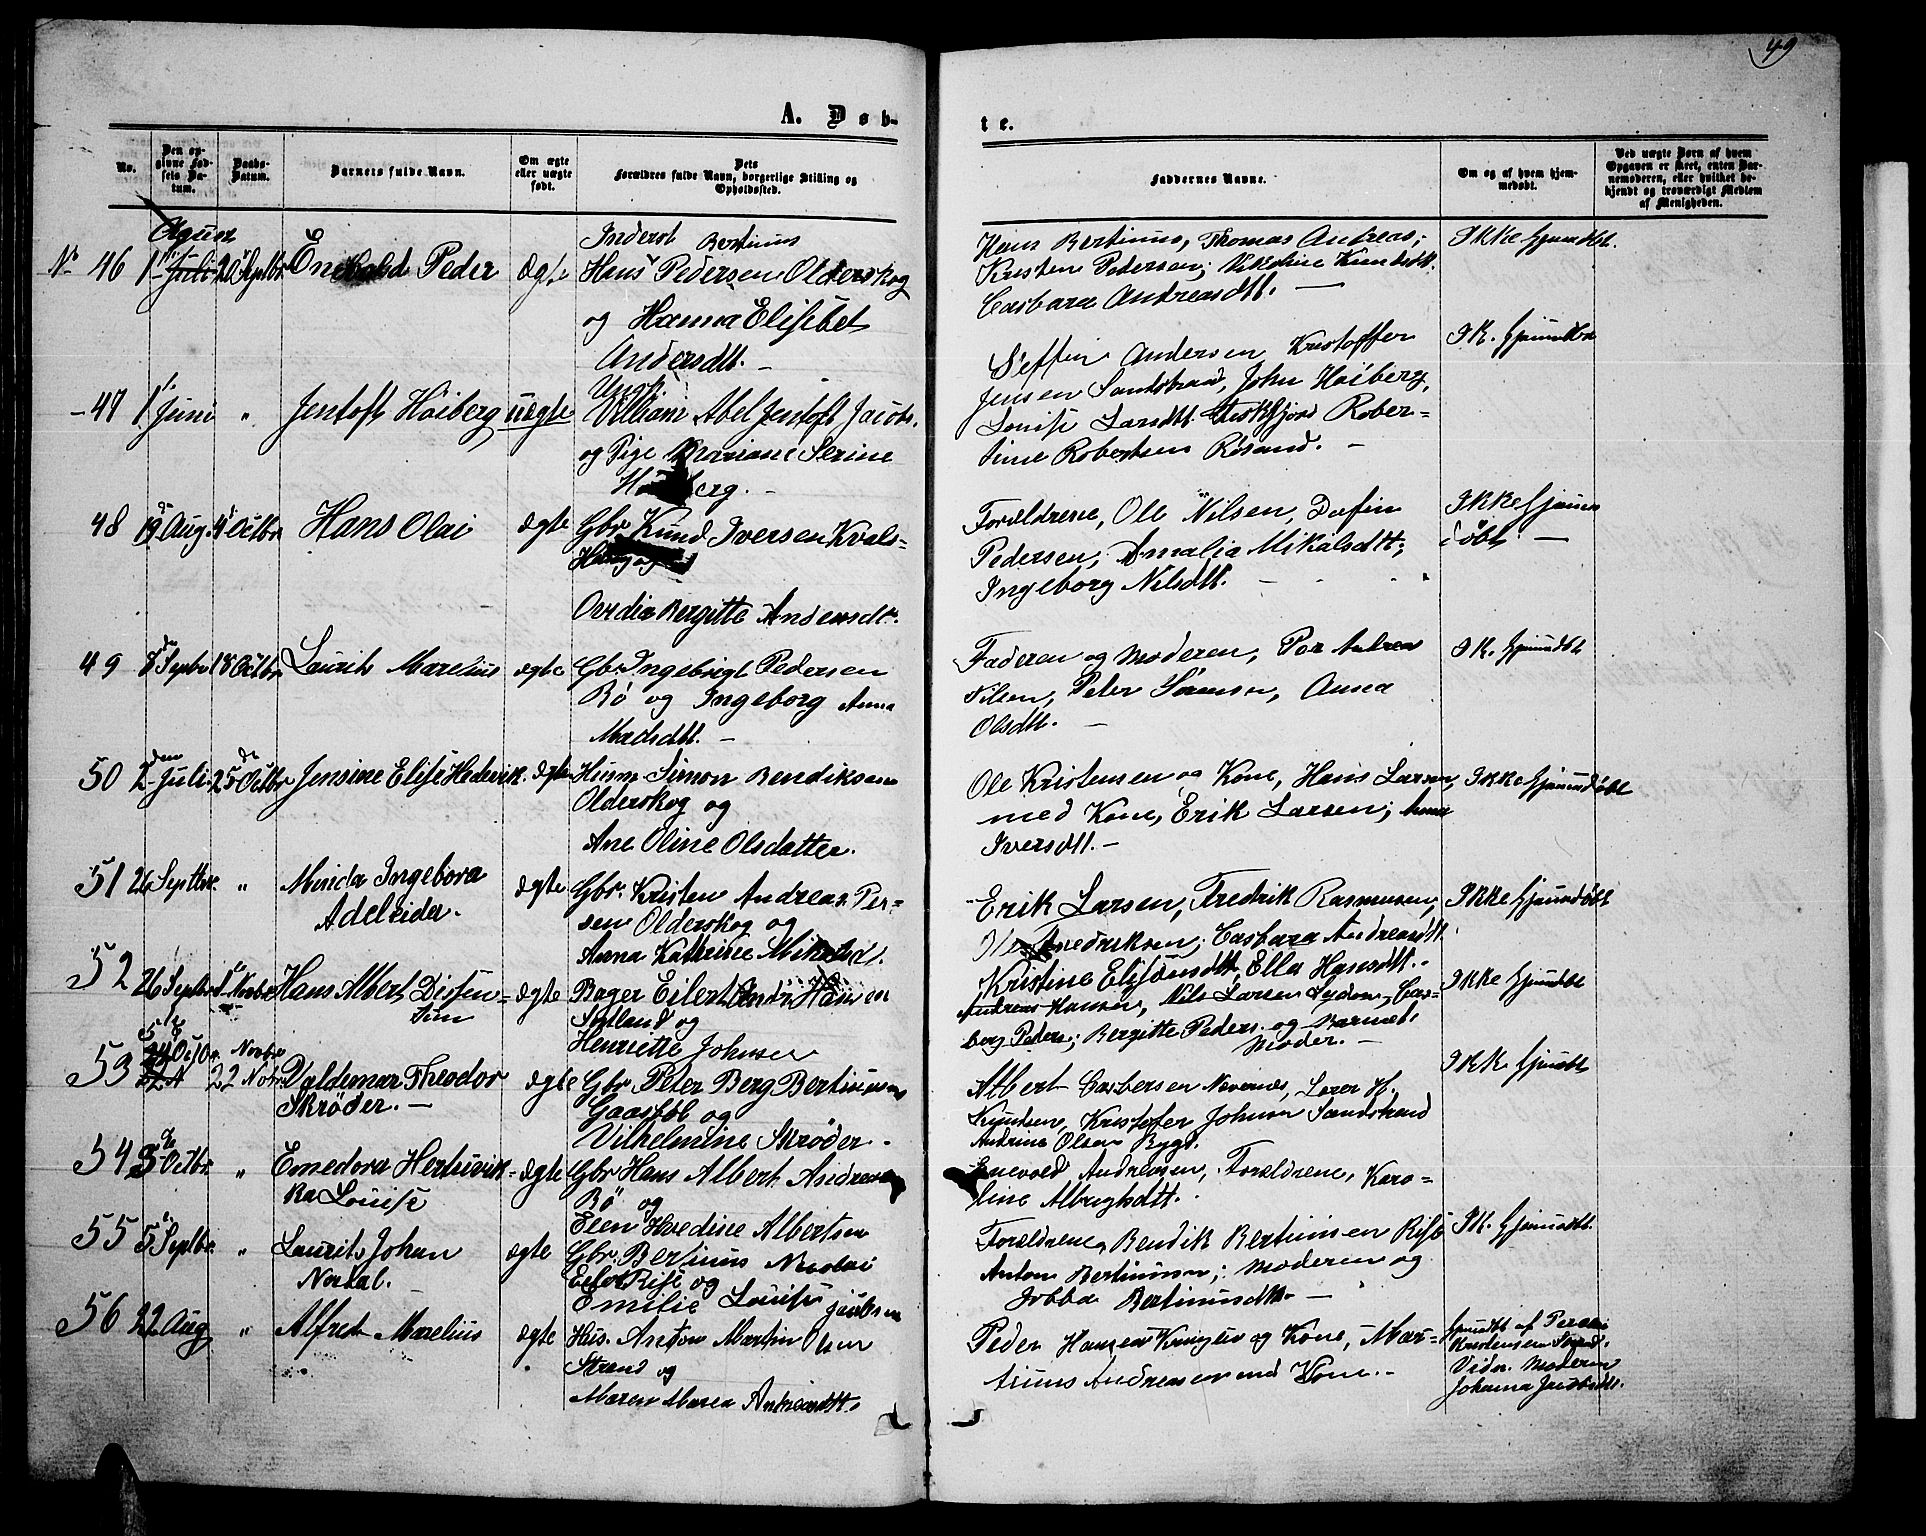 49
A. Døb-
te.
No.
Den op-
givne Fød-
sels Da-
tum.
Daabs-
Datum.
Barnets fulde Navn.
Om ægte
eller uægte
født.
Dets
Forældres fulde Navn, borgerlige Stilling og
Opholdssted.
Faddernes Navne.
Om og af hvem hjem-
medøbt.
Ved uægte Børn af hvem
Opgaven er skeet, enten Bar-
nemoderen, eller hvilket be-
kjendt og troværdigt Medlem
af Menigheden.
No 46 1 Juli 20 Septbr Peder Ægte
Inderst Bertinus
Hans Pedersen Olderskog
og Hanna Elisabet
Andersdtt. -
Hans Bertinus, Thomas Andreas;
Kristen Pedersen; Nikoline Knudsdt.
Casbara Andreasdtt. -
Ikke hjemdbt.
- 47 1 Juni " Jentoft Høiberg uægte
Ungk.
Villiam Abel Jentoft Jacobs.
og Pige Mariane Serine
Høiberg. -
Seffin Andersen Kristoffer
Jensen Sandstrand, John Høiberg,
Lovise Larsdtt. Rober-
tine Robertsen Røsand. -
Ik. hjemdbt
48 19 Aug. 4 Octbr Hans Olai ægte
Gbr Knud Iversen Kvals-
Haug og
Ovedia Bergitte Andersdtt.
Forældrene, Ole Nilsen, Dorfin
Pedersen; Amalia Mikalsdtt;
Ingeborg Nilsdtt. -
Ikke hjem
døbt -
49 8 Septbr 18 Octbr Laurits Marelius ægte
Gbr Ingebrigt Pedersen
Bø og Ingeborg Anna
Madsdtt. -
Faderen og Moderen, Per Andrea
Nilsen, Peter Sørensen, Anna
Olsdtt. -
Ik. hjemdbt
50 2 den Juli 25 de Octbr Jensine Elise Hedevik. ægte
Husm Simon Bendiksen
Olderskog og
Ane Oline Olsdatter.
Ole Kristensen og Kone, Hans Larsen
med Kone, Erik Larsen; Anna
Iversdtt. -
Ikke hjemmdøbt
51 26 Septbr. " Minda Ingebora
Adeleider. ægte
Gbr. Kristen Andreas Per-
sen Olderskog og
Anna Katrine Mikalsd.
Erik Larsen, Fredrik Rasmusen,
Fredriksen; Casbara Andreasdtt.
Kristine Elisæusdtt, Ella Hansdtt.
Ikke hjemmdøbt
52 26 Septbr 1 Novbr Hans Albert Disen-
Sim ægte
Bager Eilert Andr Hansen
Sylland og
Henriette Johnsen
Andreas Hansen, Nils Larsen Lydersen, Cas-
berg Peders; Bergitte Peders. og Barnets
Moder. -
Ikke hjemdbt
53 22 Novbr Valdemar Theodor
Skrøder. - ægte
Gbr Peter Berg Bertinusen
Gaasbøl og
Vilhelmine Skrøder -
Albert Casbersen Nævernes, Lorer H.
Knudsen, Kristofer Johnsen Sandstrand
Andrine Olsen Bygd.
Ikk hjemdbt
54 3 Octbr. " Emedora Hertinvik-
ka Lovise ægte
Gbr Hans Albert Andreas
Bø og
Elen Hvedine Albertsen
Enevold Andreasen, Forældrene, Karo-
line Albregtsdtt. -
55 5 Septbr " Laurits Johan
Nordal. ægte
Gbr. Bertinus Nicolai
Risø og
Emilie Lovise Jacobsen
Forældrene, Bendik Bertinusen Risø
Anton Bertinusen; Moderen og
Jobba Bertinusdtt. -
Ik. hjemmdbt.
56 22 Aug " Alfred Marelius ægte
Hus. Anton Martin Olsen
Strand og
Maren Marea Andreasdtt.
Peder Hansen og Kone, Mar-
tinus Andreasen med Kone. -
hjemdbt af Peder
Kristensen Strand.
Vidn. Moderen
Johanna Jacobsdt.